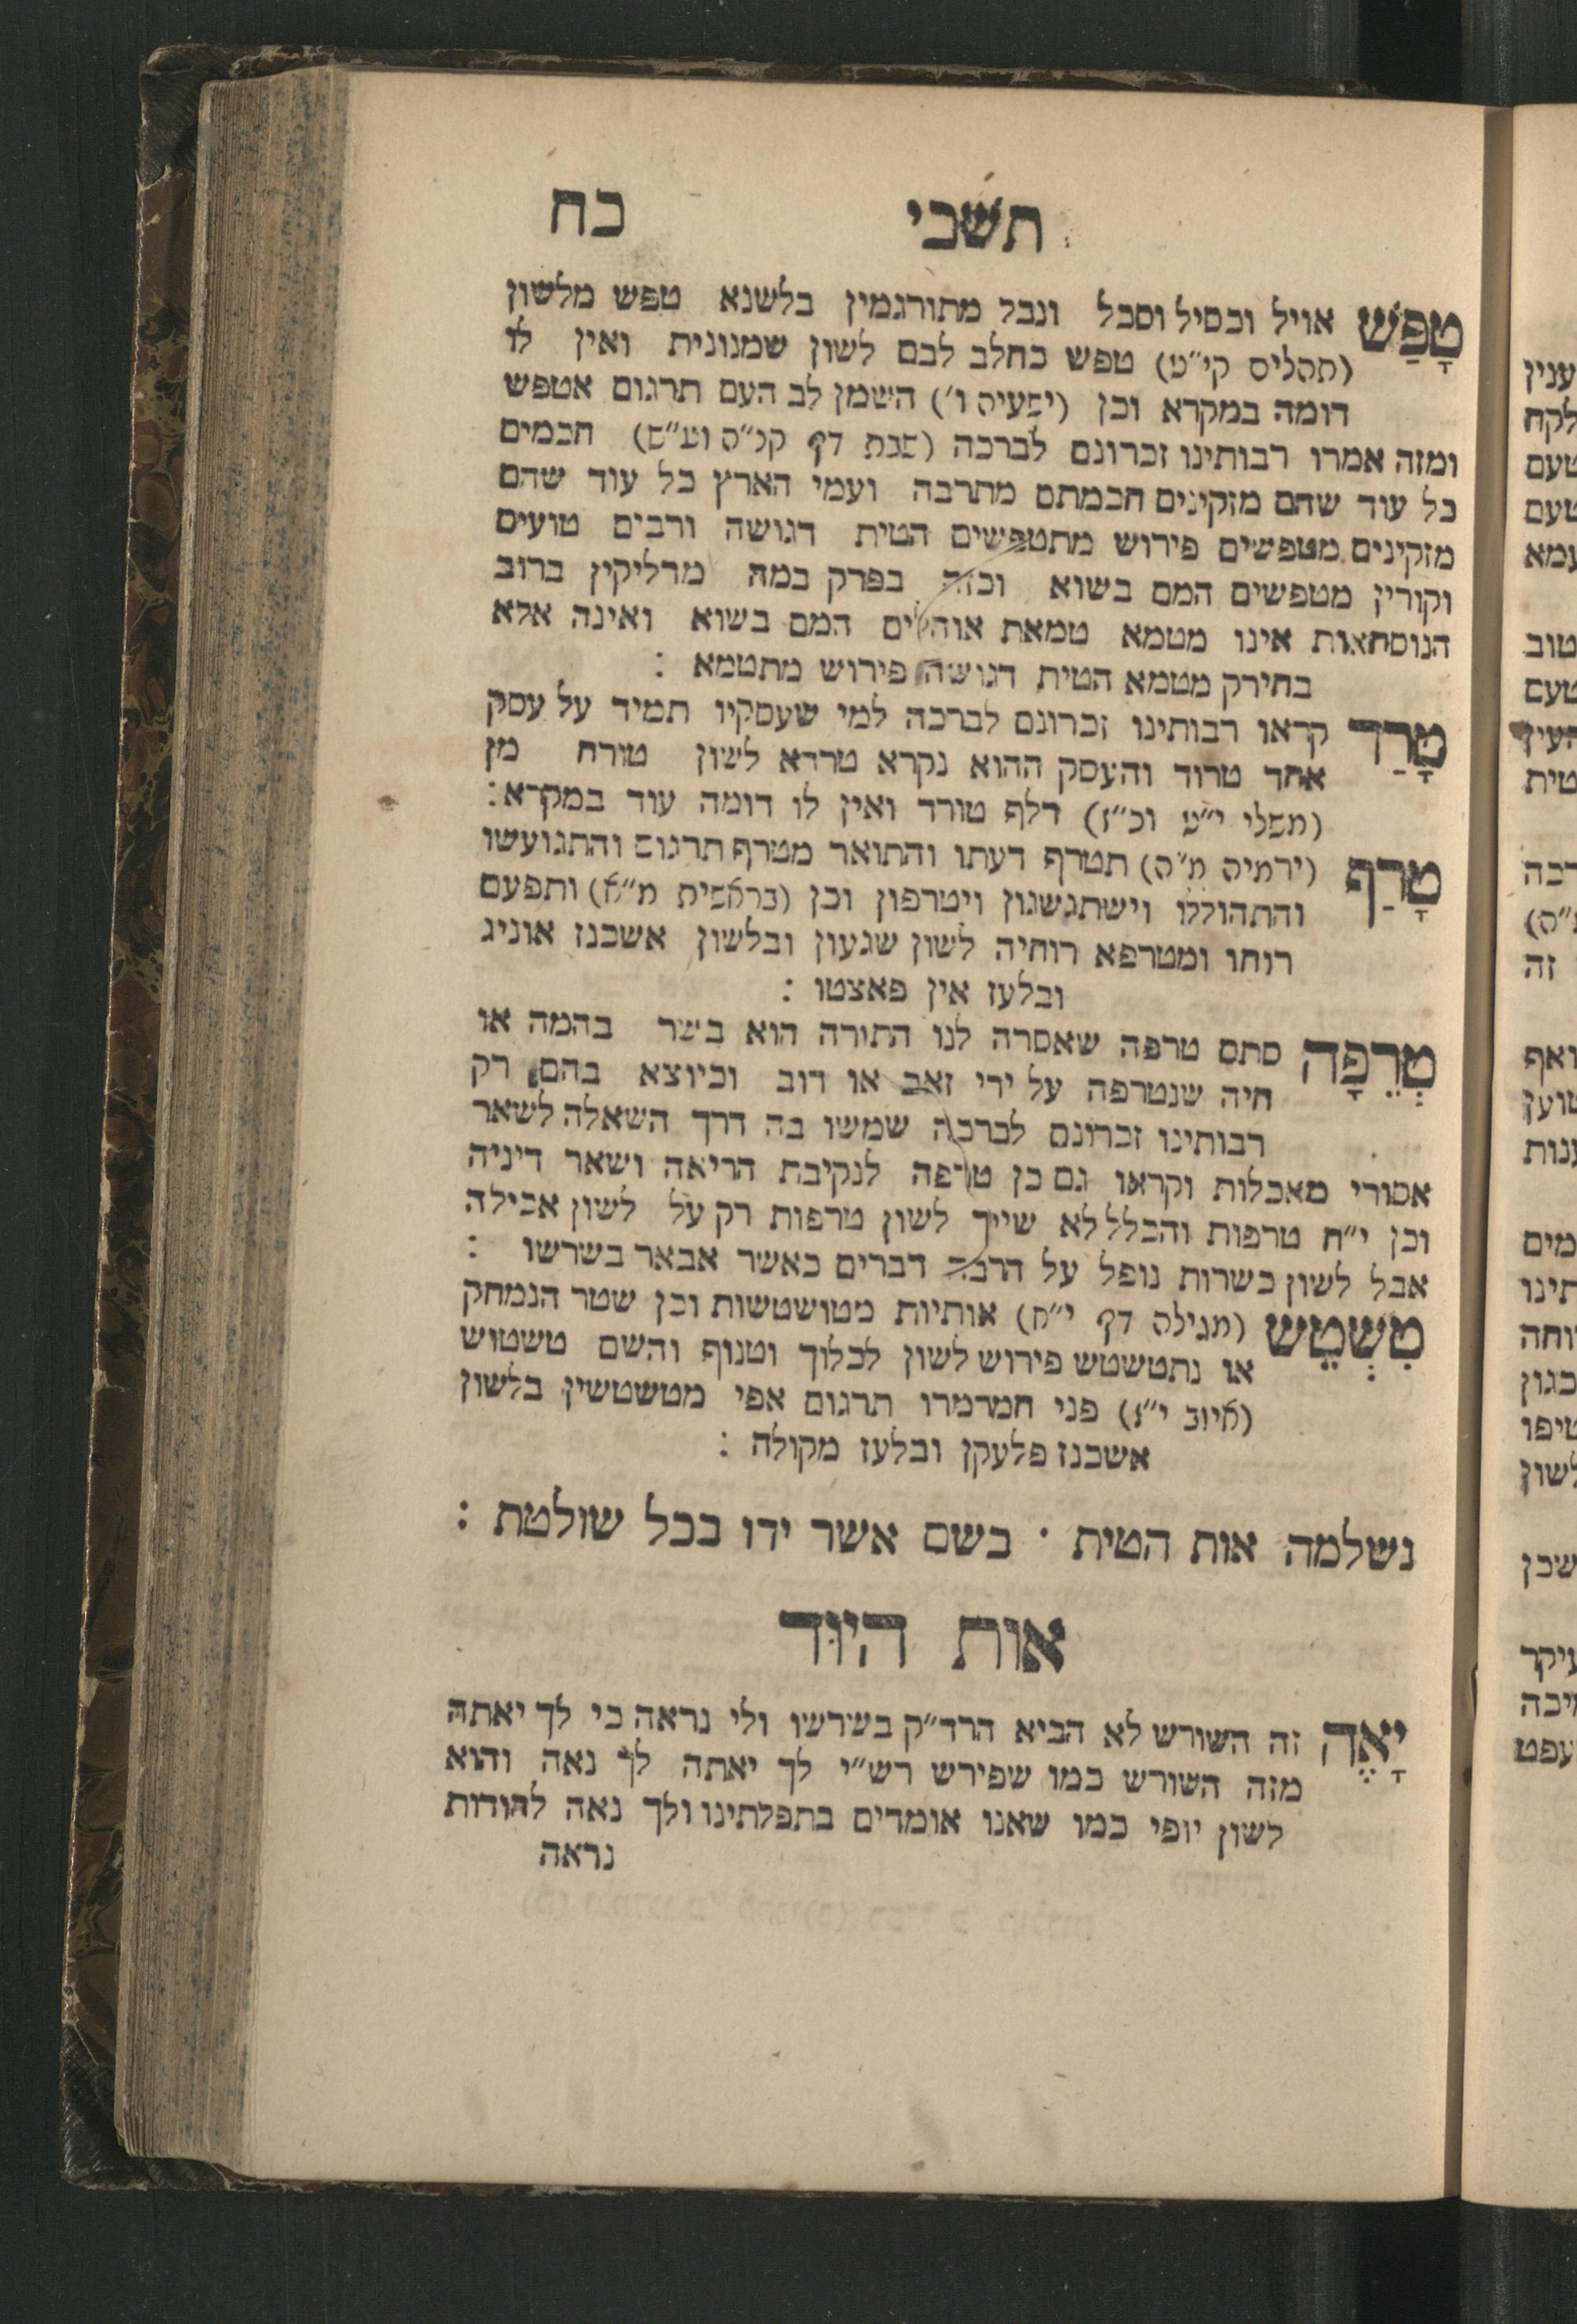 תשבי כח
טָפַּשׁ אויל וכסיל וסכל ונבל מתורגמין בלשנא טפש מלשון
(תהלים קי״ט) טפש כחלב לבם לשון שמנונית ואין לו
דומה במקרא וכן (ישעיה ו׳) השמן לב העם תרגום אטפש
ומזה אמרו רבותינו זכרונם לברכה (שבת דף קנ״ה וע״ש) חכמים
כל עוד שהם מזקינים חכמתם מתרבה ועמי הארץ כל עוד שהם
מזקינים מטפשים פירוש מתטפשים הטית דגושה ורבים טועים
וקורין מטפשים המם בשוא וכזה בפרק במה מדליקין ברוב
הנוסחאות אינו מטמא טמאת אוהלים המם בשוא ואינה אלא
בחירק מטמא הטית דגושה פירוש מתטמא :
טָרַד קראו רבותינו זכרונם לברכה למי שעסקיו תמיד על עסק
אחד טרוד והעסק ההוא נקרא טרדא לשון טורח מן
(משלי י״ט וכ״ז) דלף טורד ואין לו דומה עוד במקרא :
טָרַף (ירמיה מ״ה) תטרף דעתו והתואר מטרף תרגום והתגועשו
והתהוללו וישתגשגון ויטרפון וכן (בראשית מ״א) ותפעם
רוחו ומטרפא רוחיה לשון שגעון ובלשון אשכנז אוניג
ובלעז אין פאצטו :
טְרֵפָה סתם טרפה שאסרה לנו התירה הוא בשר בהמה או
חיה שנטרפה על ידי זאב או דוב וכיוצא בהם רק
רבותינו זכרונם לברכה שמשו בה דרך השאלה לשאר
אסורי מאכלות וקראו גם כן טרפה לנקיבת הריאה ושאר דיניה
וכן י״ח טרפות והכלל לא שייך לשון טרפות רק על לשון אכילה
אבל לשון כשרות נופל על הרבה דברים כאשר אבאר בשרשו :
טִשְׁטֵשׁ (מגילה דף י״ח) אותיות מטושטשות וכן שטר הנמחק
או נתטשטש פירוש לשון לכלוך וטנוף והשם טשטוש
(איוב י״ו) פני חמרמרו תרגום אפי מטשטשין בלשון
אשכנז פלעקן ובלעז מקולה :
נשלמה אות הטית · בשם אשר ידו בכל שולטת :
אות היוד
יָאֶה זה השורש לא הביא הרד״ק בשרשו ולי נראה כי לך יאתה
מזה השורש כמו שפירש רש״י לך יאתה לך נאה והוא
לשון יופי כמו שאנו אומרים בתפלתינו ולך נאה להודות
נראה
ענין
לקח
טעם
טעם
עמא
טוב
טעם
העין
טית
רבה
זה
ואף
טוען
ענות
מים
תינו
וחה
כגון
טיפו
לשון
שכן
עיקר
יכה
עפט